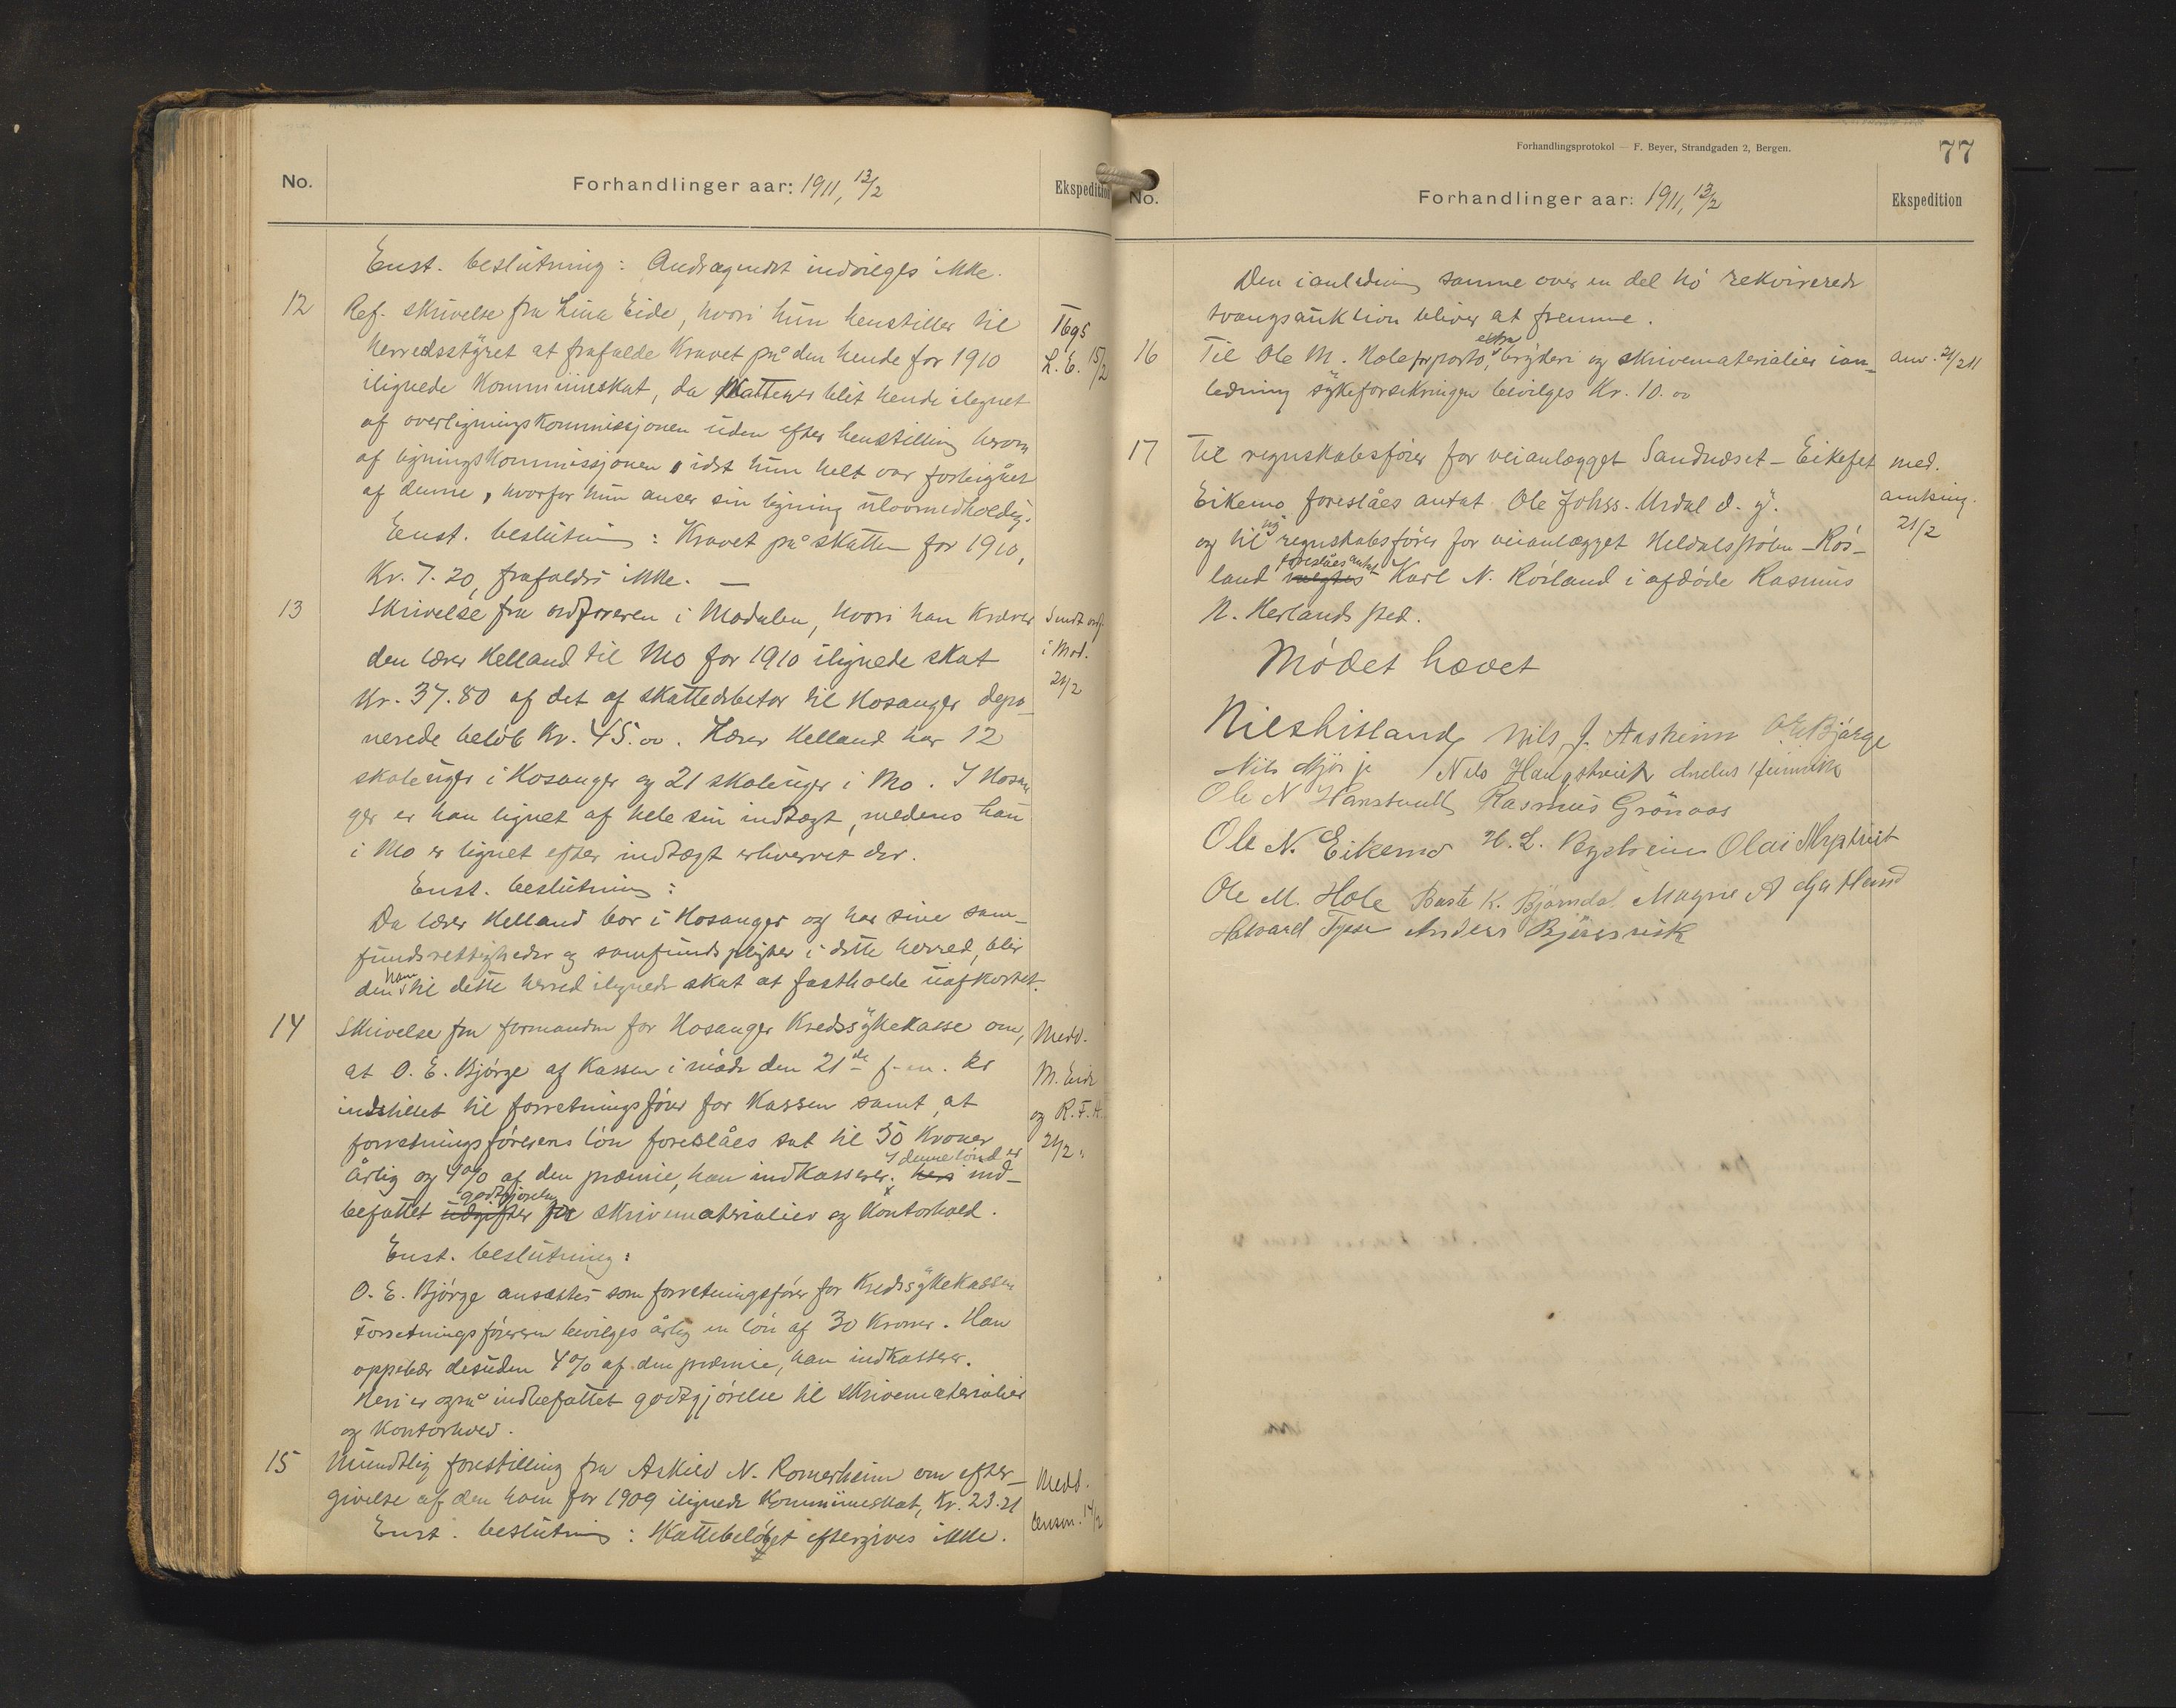 No.
Forhandlinger aar: 1911, 13/2
Ekspedition
Enst. beslutning: Andragendet indvilges ikke.
12 Ref. skrivelse fra Lina Eide, hvori hun henstiller til
herredsstyret at frafalde kravet på den hende for 1910
ilignede kommuneskat, da skatten er blit hende ilignet
af overligningskommissjonen uden efter henstilling herom
af ligningskommissjonen, idet hun helt var forbigået
af denne, hvorfor hun anser sin ligning ulovmedholdig.
L. E. 15/2
Enst. beslutning: Kravet på skatten for 1910,
Kr. 7.20, frafaldes ikke. —
13 Skrivelse fra ordføreren i Modalen, hvori han kræver
den lærer Helland til Mo for 1910 ilignede skat
Kr. 37.80 af det af skattedebetor til Hosanger depo-
nerede beløb Kr. 45.00. Lærer Helland har 12
skoleuger i Hosanger og 21 skoleuger i Mo. I Hosan
ger er han lignet af hele sin indtægt, medens han
i Mo er lignet efter indtægt erhvervet der.
Sendt ordf.
i Mod.
21/2
Enst. beslutning:
Da lærer Helland bor i Hosanger og har sine sam-
fundsrettigheder og samfundspligter i dette herred, blir
den ham til dette herred ilignede skat at fastholde uafkortet.
14 Skrivelse fra formanden for Hosanger Kredssykekasse om,
at O. E. Bjørge af kassen i møde den 21de f. m. er
indstillet til forretningsfører for kassen samt, at
forretningsførerens løn foreslåes sat til 50 kroner
årlig og 4% af den præmie, han indkasserer. I denne løn er heri ind-
befattet godtgjørelse udgifter for skrivematerialier og kontorhold.
Medd.
M. Eide
og R. F. H.
21/2.
Enst. beslutning:
O. E. Bjørge ansættes som forretningsfører for Kredssykekassen
Forretningsføreren bevilges årlig en løn af 30 kroner. Han
oppebær desuden 4% af den præmie, han indkasserer.
Heri er også indbefattet godtgjørelse til skrivematerialier
og kontorhold.
15 Mundtlig forestilling fra Askild N. Romarheim om efter-
givelse af den ham for 1909 ilignede kommuneskat, Kr. 23.21
Enst. beslutning: Skattebeløbet eftergives ikke.
Medd.
14/2
Forhandlingsprotokol — F. Beyer, Strandgaden 2, Bergen.
77
No.
Forhandlinger aar: 1911, 13/2
Ekspedition
Den i anledning samme over en del hø rekvirerede
tvangsauktion bliver at fremme.
16 Til Ole M. Hole for porto, ekstra bryderi og skrivematerialier ian-
ledning sykeforsikringen bevilges Kr. 10.00
anv. 21/2 11
17 Til regnskabsfører for veianlægget Sandnæset – Eikefet
Eikemo foreslåes antat Ole Johss. Urdal d. y.
og til ny regnskabsfører for veianlægget Heldalspolen – Røs-
land foreslåes antat vælges Karl N. Røsland i afdøde Rasmus
N. Herlands sted.
med.
amtsing.
21/2
Mødet hævet
Nils J. Aasheim O. E. Bjørge
Nils Mjøs
Rasmus Grønaas
Ole N. Eikemo
Ole M. Hole Baste K. Bjørndal Magne A
Halvard Tysse Anders Bjørsvik